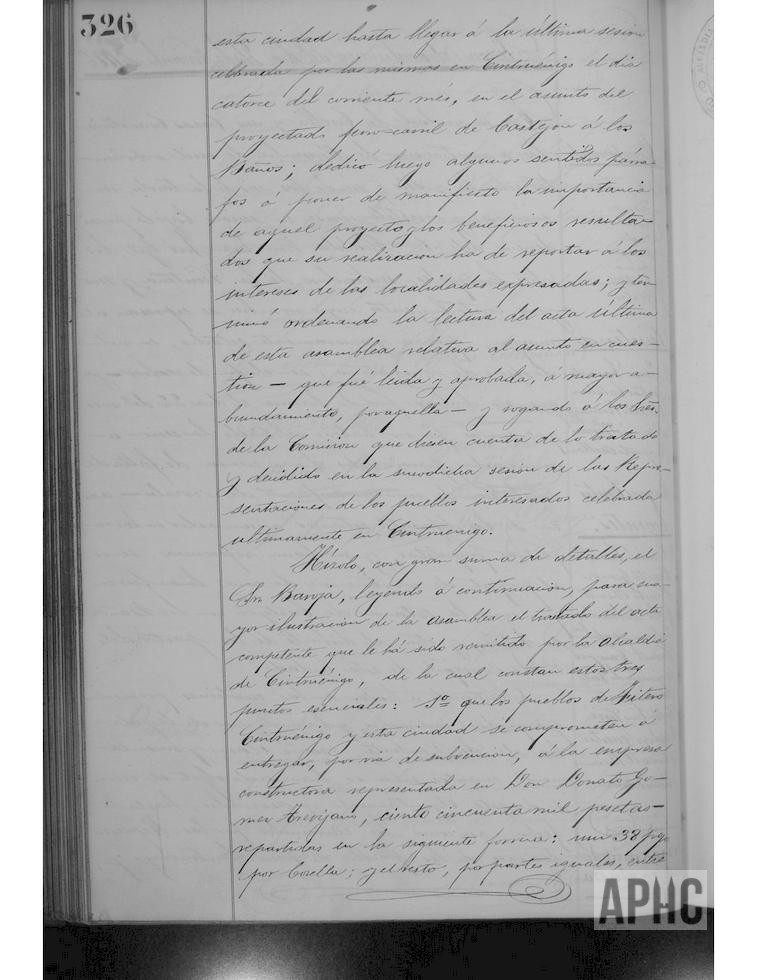 326
esta ciudad hasta llegar á la última sesión
celebrada por las mismas en Cintruénigo el dia
catorce del corriente més, en el asunto del
proyectado ferro-carril de Castejón á los
Baños; dedicó luego algunos sentidos párra-
fos á poner de manifiesto la importancia
de aquel proyecto y los beneficiosos resulta-
dos que su realizacion ha de reportar á los
intereses de las localidades expresadas; y ter-
minó ordenando la lectura del acta última
de esta asamblea relativa al asunto en cues-
tion — que fué leida y aprobada, á mayor a-
bundamiento, por aquella — y rogando á los Sres.
de la Comision que diesen cuenta de lo tratado
y decidido en la susodicha sesion de las Repre-
sentaciones de los pueblos interesados celebrada
ultimamente en Cintruénigo.
Hízolo, con gran suma de detalles, el
Sr. Baroja, leyendo á continuacion, para ma-
yor ilustracion de la asamblea el traslado del acta
competente que le há sido remitido por la alcaldia
de Cintruénigo, de la cual constan estos tres
puntos esenciales: 1º que los pueblos de Fitero
Cintruénigo y esta ciudad se comprometen á
entregar, por via de subvencion, á la empresa
constructora representada en Don Donato Go-
mez Trevijano, ciento cincuenta mil pesetas —
repartidas en la siguiente forma: un 38 p%
por Corella; y el resto, por partes iguales, entre
APHC